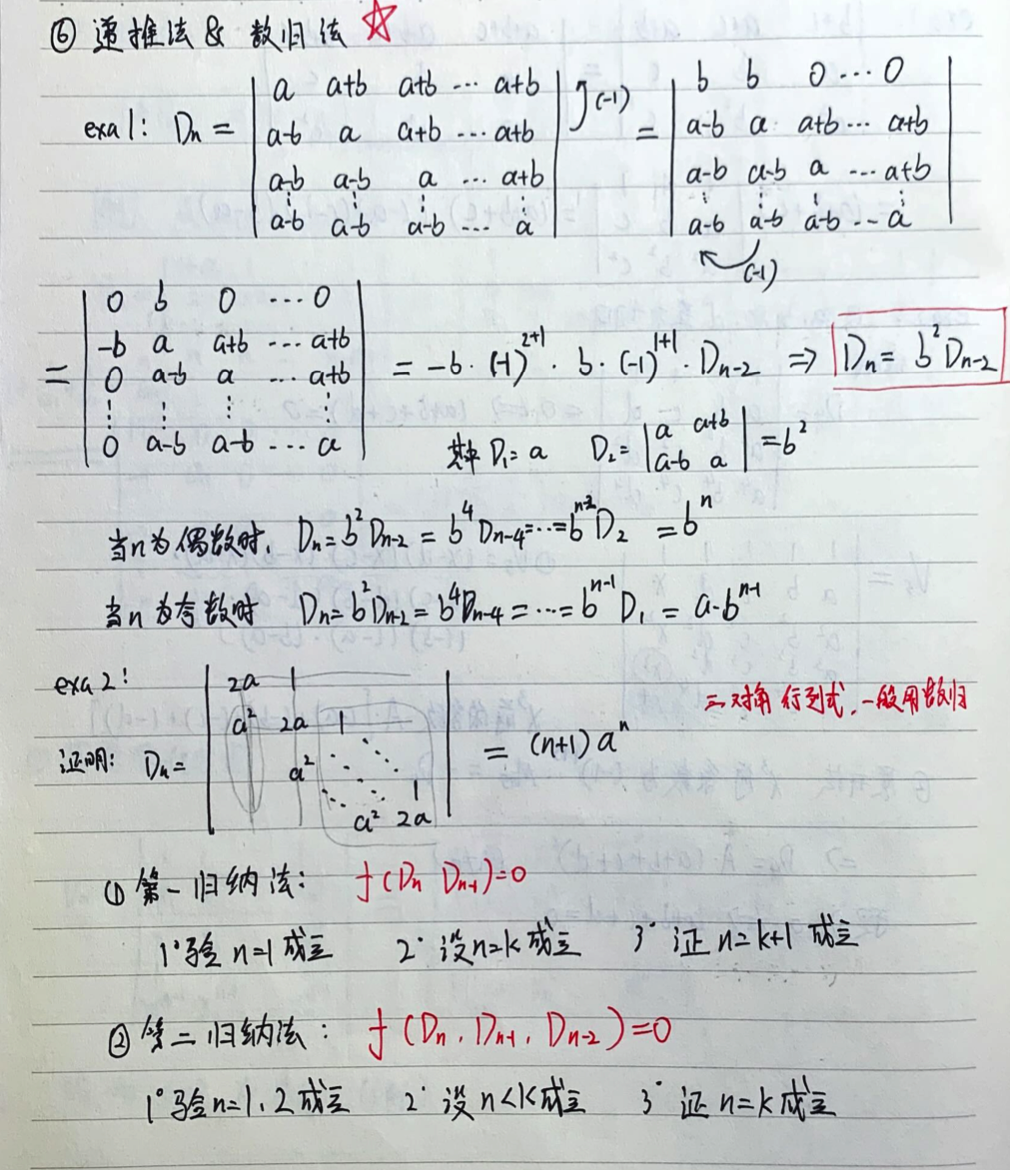 ⑥ 递推法 & 数归法 ☆
exa1: Dn = | a a+b a+b ⋯ a+b | (-1) = | b b 0 ⋯ 0 |
| a-b a a+b ⋯ a+b | | a-b a a+b ⋯ a+b |
| a-b a-b a ⋯ a+b | | a-b a-b a ⋯ a+b |
| ⋮ ⋮ ⋮ ⋮ | | ⋮ ⋮ ⋮ ⋮ |
| a-b a-b a-b ⋯ a | | a-b a-b a-b ⋯ a |
(-1)
= | 0 b 0 ⋯ 0 |
| -b a a+b ⋯ a+b |
| 0 a-b a ⋯ a+b | = -b·(-1)^{2+1}·b·(-1)^{1+1}·D_{n-2} ⇒ Dn = b²D_{n-2}
| ⋮ ⋮ ⋮ ⋮ |
| 0 a-b a-b ⋯ a | 其中 D₁=a D₂=| a a+b |
| a-b a | =b²
当n为偶数时, Dn=b²D_{n-2} = b⁴D_{n-4}=⋯=b^{n-2}D₂ =bⁿ
当n为奇数时 Dn=b²D_{n-2}=b⁴D_{n-4}=⋯=b^{n-1}D₁=a·b^{n-1}
exa2: | 2a 1 |
| a² 2a 1 | 三对角行列式,一般用数归
证明: Dn= | a² ⋱ ⋱ | = (n+1)aⁿ
| ⋱ ⋱ 1 |
| a² 2a |
① 第一归纳法: f(Dn D_{n-1})=0
1°验n=1成立 2°设n=k成立 3°证n=k+1成立
② 第二归纳法: f(Dn, D_{n-1}, D_{n-2})=0
1°验n=1,2成立 2°设n<k成立 3°证n=k成立